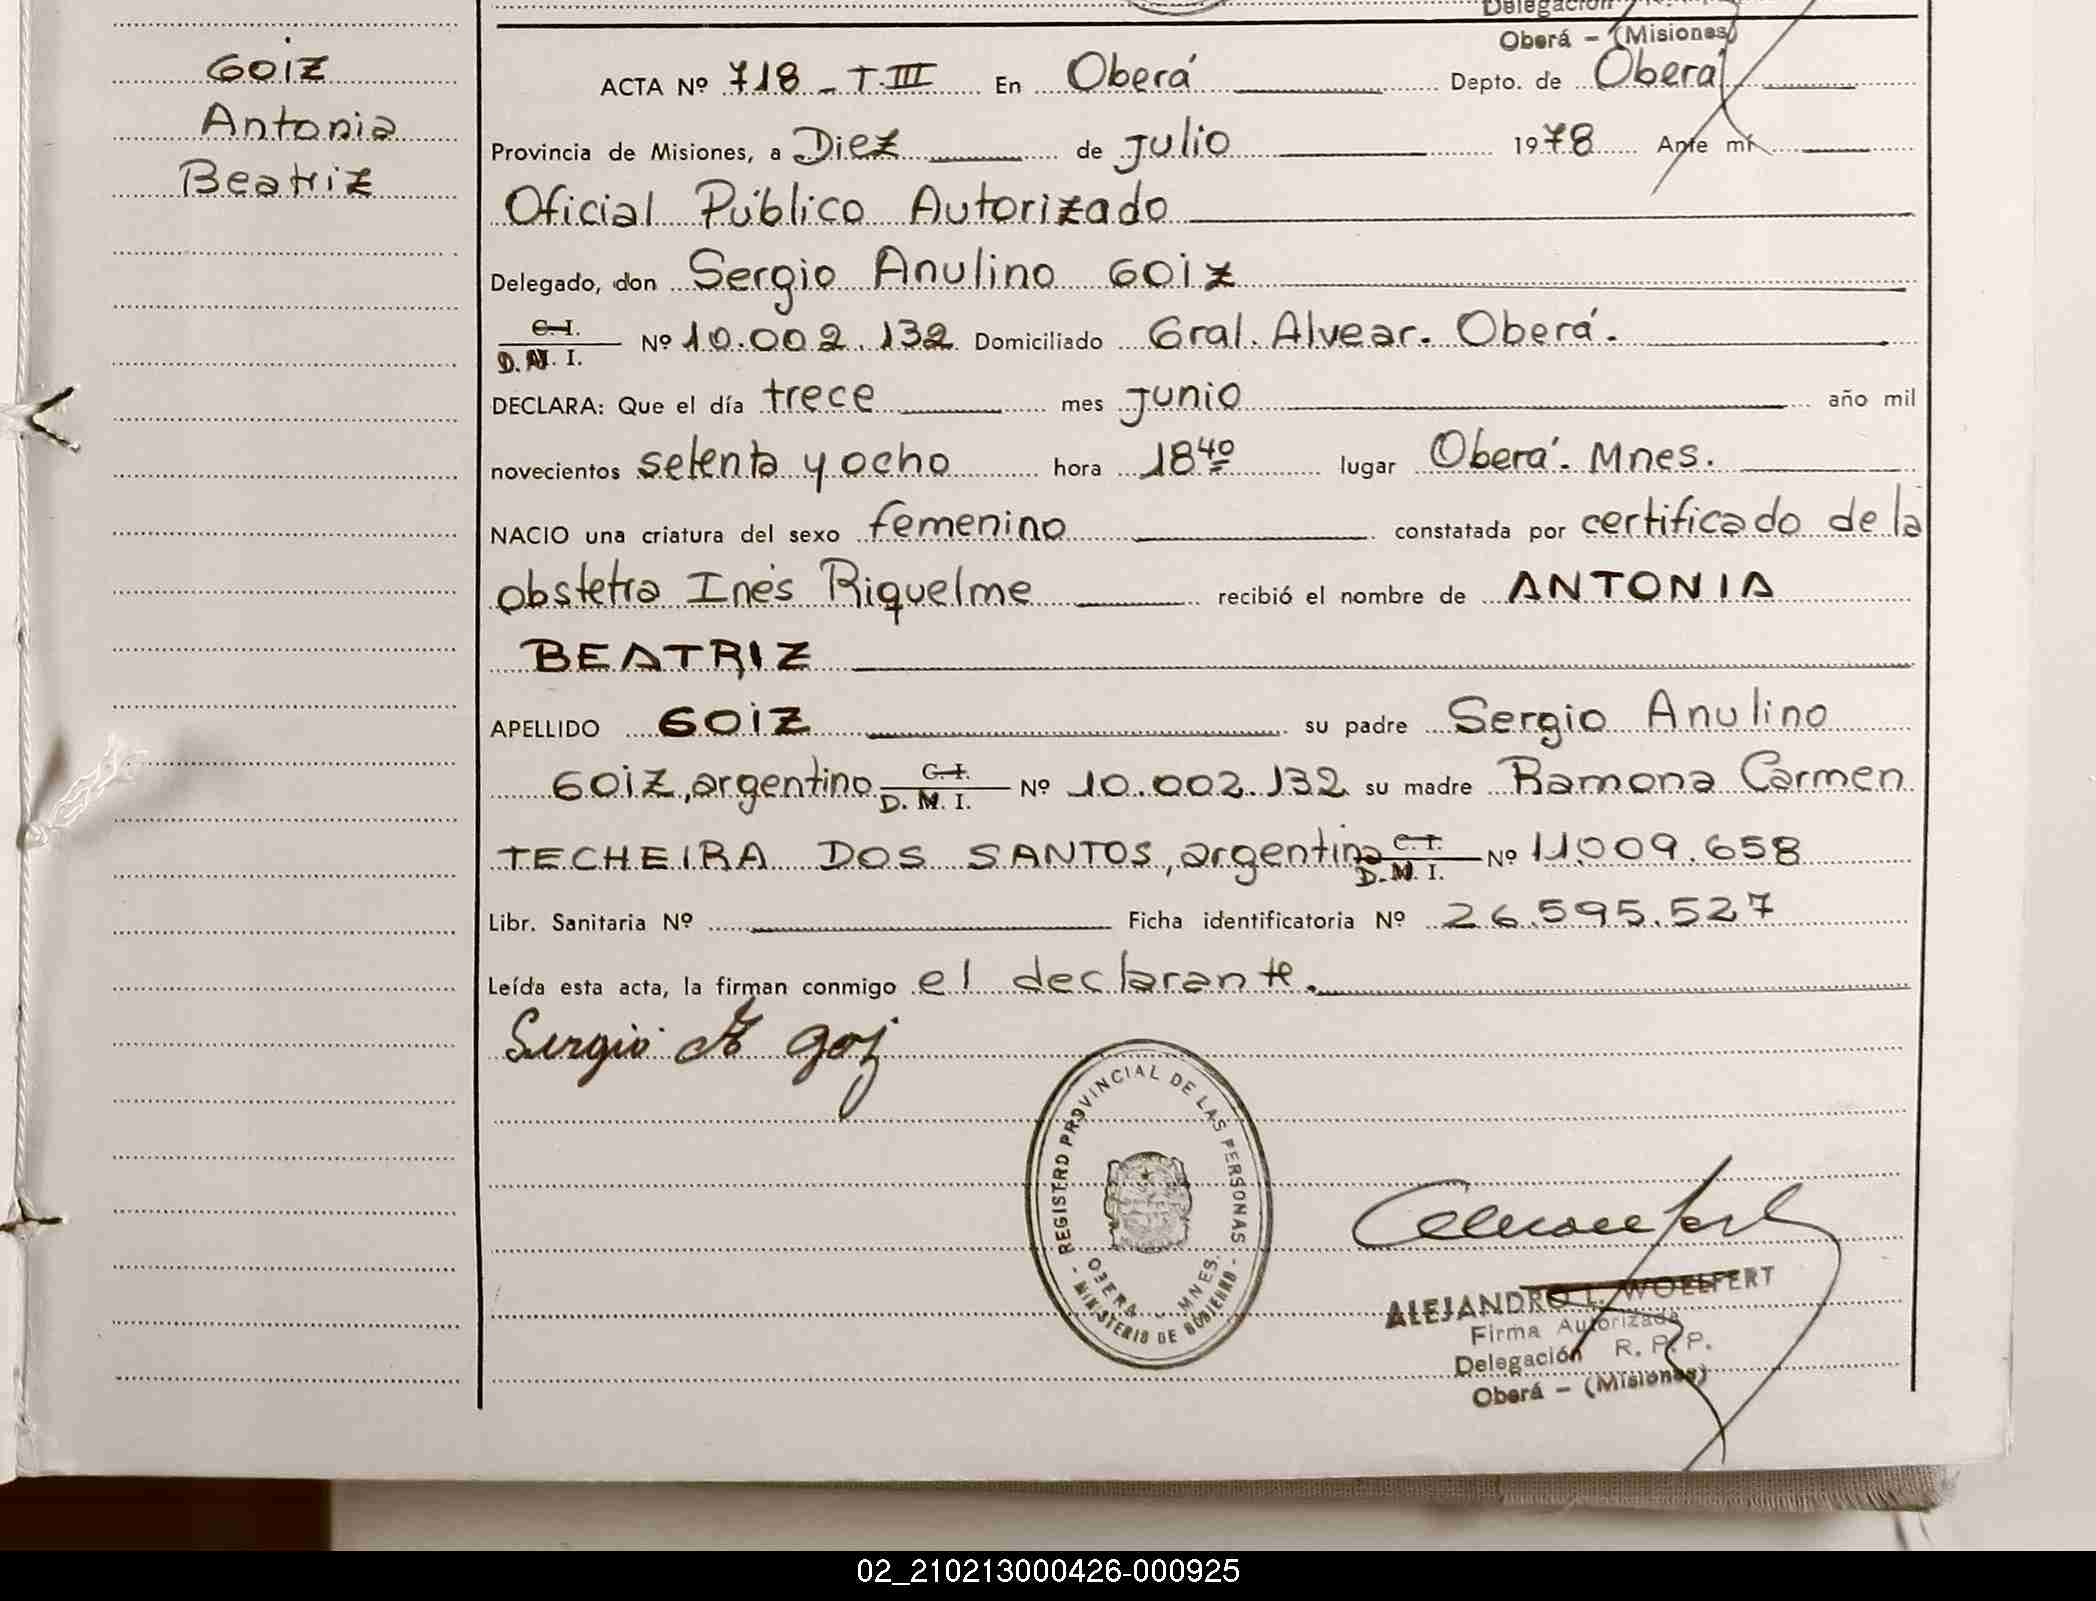 Delegación
Oberá - (Misiones)
GOIZ
Antonia
Beatriz
ACTA Nº 718 - T.III En Oberá Depto. de Oberá
Provincia de Misiones, a Diez de julio 1978 Ante mí
Oficial Público Autorizado
Delegado, don Sergio Anulino GOIZ
C. I.
D. M. I. Nº 10.002.132 Domiciliado Gral. Alvear. Oberá.
DECLARA: Que el día trece mes junio año mil
novecientos setenta y ocho hora 18 40 lugar Oberá. Mnes.
NACIO una criatura del sexo femenino constatada por certificado de la
obstetra Inés Riquelme recibió el nombre de ANTONIA
BEATRIZ
APELLIDO GOIZ su padre Sergio Anulino
GOIZ, argentino C. I. D. M. I. Nº 10.002.132 su madre Ramona Carmen
TECHEIRA DOS SANTOS, argentina C. I. D. M. I. Nº 11.009.658
Libr. Sanitaria Nº Ficha identificatoria Nº 26.595.527
Leída esta acta, la firman conmigo el declarante.
Sergio A goz
REGISTRO PROVINCIAL DE LAS PERSONAS
OBERA - MNES.
- MINISTERIO DE GOBIERNO -
ALEJANDRO L. WOELFERT
Firma Autorizada
Delegación R. P. P.
Oberá - (Misiones)
02_210213000426-000925